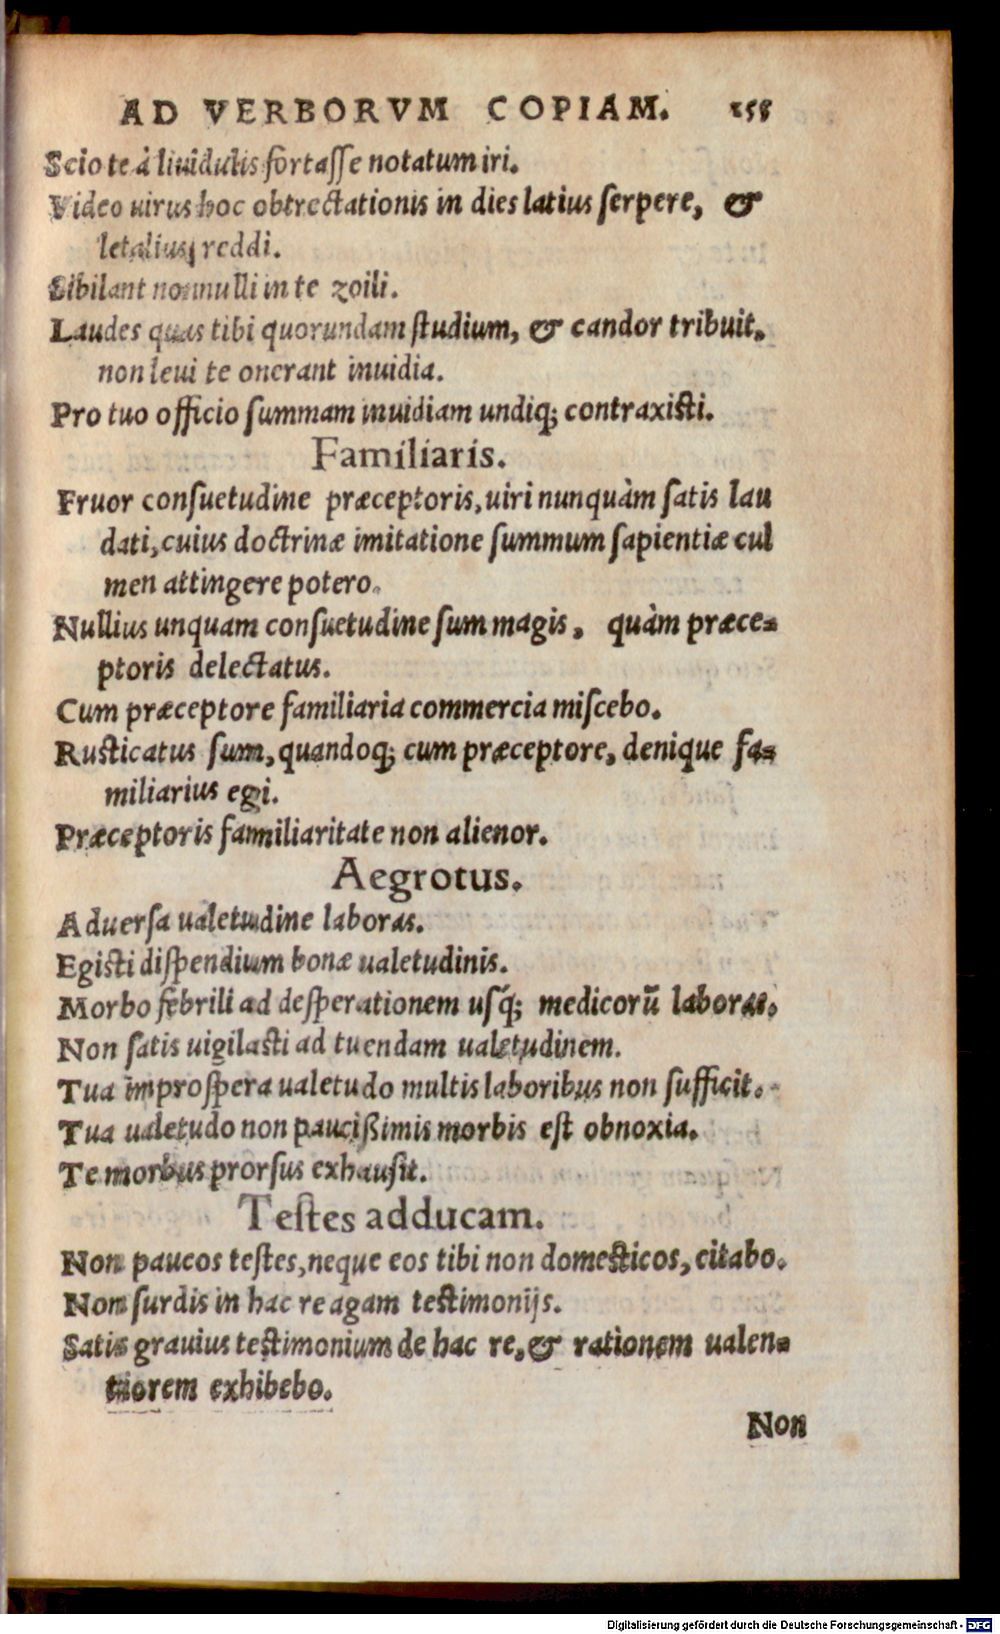 AD VERBORVM COPIAM. 258
Scio te à liuidulis fortasse notatum iri.
Video uirus hoc obtrectationis in dies latius serpere, &
letaliusq; reddi.
Sibilant nonnulli in te zoili.
Laudes quas tibi quorundam studium, & candor tribuit.
non leui te onerant inuidia.
Pro tuo officio summam inuidiam undiq; contraxisti.
Familiaris.
Fruor consuetudine præceptoris, uiri nunquàm satis lau
dati, cuius doctrinæ imitatione summum sapientiæ cul
men attingere potero.
Nullius unquam consuetudine sum magis, quàm præce-
ptoris delectatus.
Cum præceptore familiaria commercia miscebo.
Rusticatus sum, quandoq; cum præceptore, denique fa-
miliarius egi.
Præceptoris familiaritate non alienor.
Aegrotus.
Aduersa ualetudine laboras.
Egisti dispendium bonæ ualetudinis.
Morbo febrili ad desperationem usq́; medicorũ laboras.
Non satis uigilasti ad tuendam ualetudinem.
Tua improspera ualetudo multis laboribus non sufficit.
Tua ualetudo non paucißimis morbis est obnoxia.
Te morbus prorsus exhausit.
Testes adducam.
Non paucos testes, neque eos tibi non domesticos, citabo.
Non surdis in hac re agam testimonijs.
Satis grauius testimonium de hac re, & rationem ualen-
tiorem exhibebo.
Non
Digitalisierung gefördert durch die Deutsche Forschungsgemeinschaft - DFG